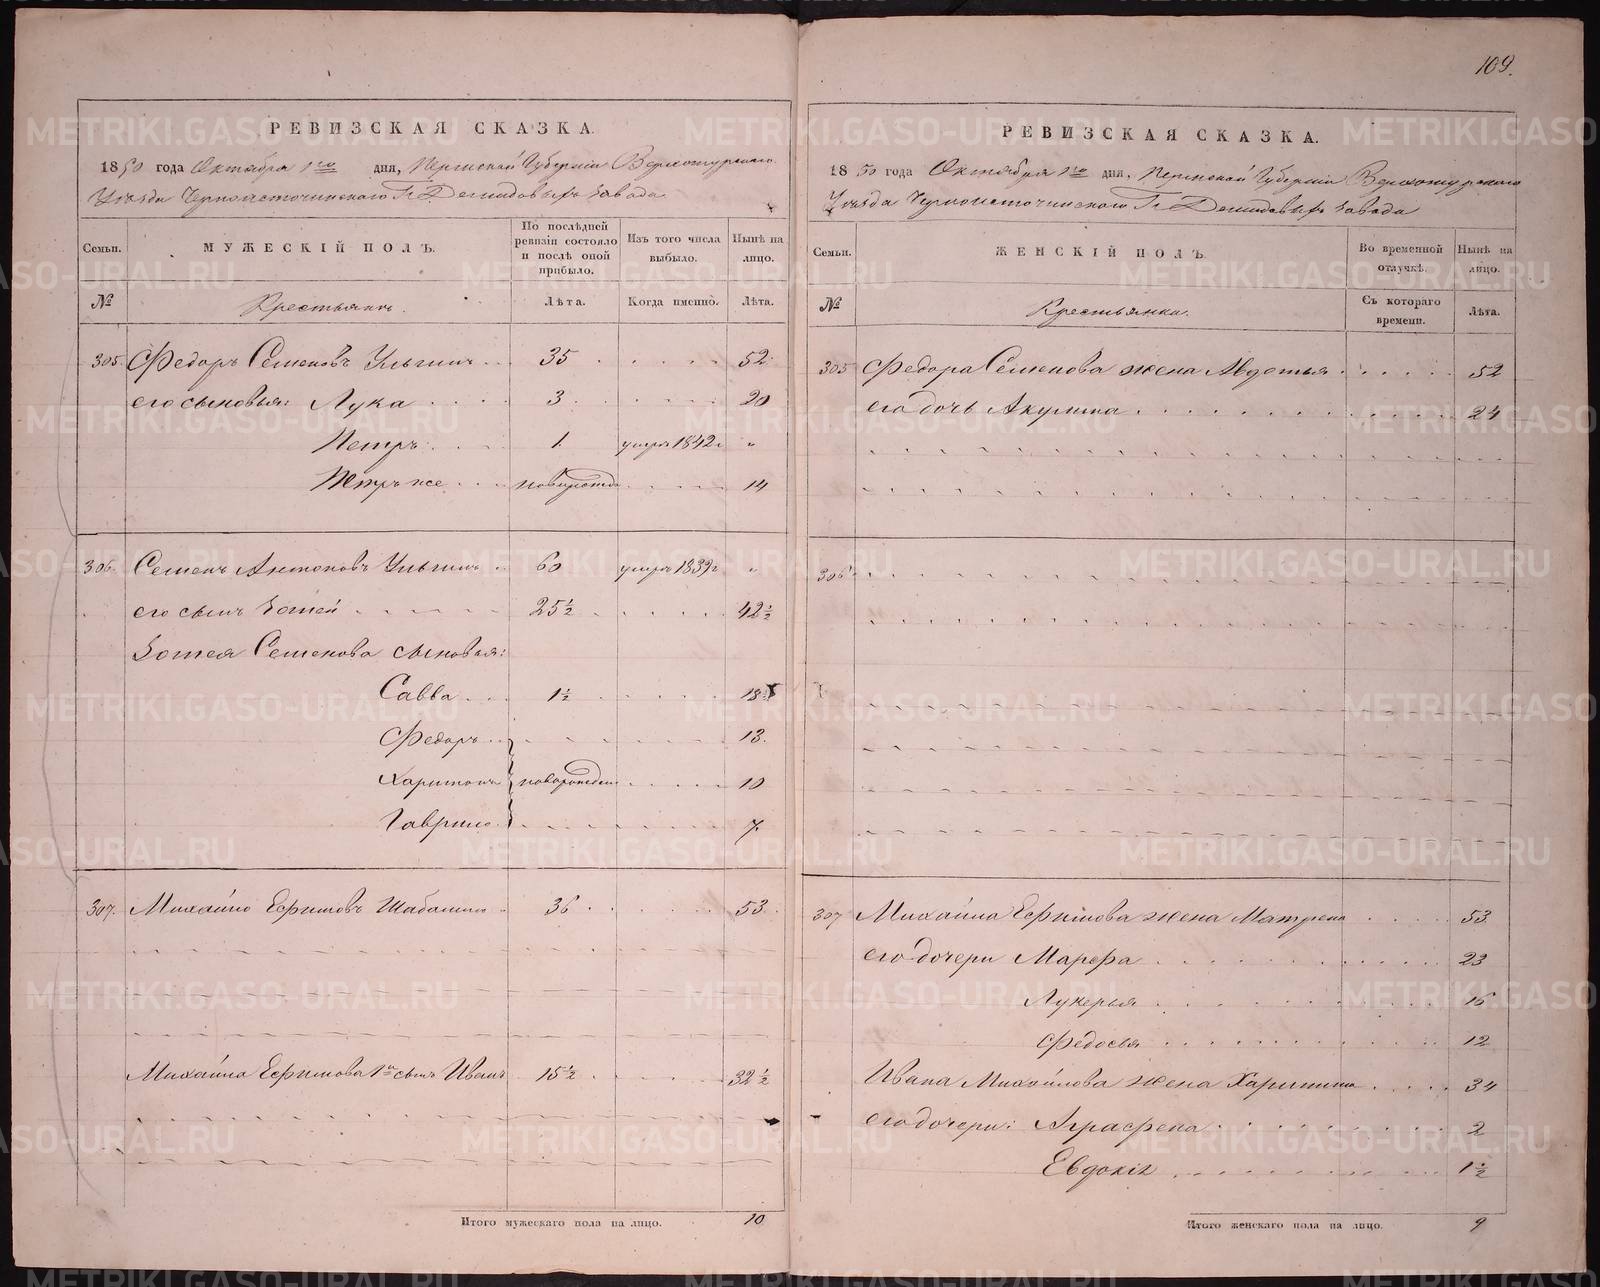 109.
РЕВИЗСКАЯ СКАЗКА.
1850 года Октября 1го дня, Пермской Губерніи Верхотурскаго
Уѣзда Черноисточинскаго Гг. Демидовыхъ завода
Семьи. МУЖЕСКІЙ ПОЛЪ. По послѣдней ревизіи состояло и послѣ оной прибыло. Изъ того числа выбыло. Нынѣ на лицо.
№ Крестьянъ. Лѣта. Когда именно. Лѣта.
305. Федоръ Семеновъ Ульгинъ 35 52.
его сыновья: Лука 3 20
Петръ 1. умеръ 1842 г „
Петръ же новорожд 14
306. Семенъ Антоновъ Ульгинъ 60 умеръ 1839 г „
его сынъ Зотей 25½ 42½
Зотея Семенова сыновья:
Савва 1½ 18½
Федоръ 13.
Харитонъ новорожден 10
Гаврило 7.
307. Михайло Ефимовъ Шабалинъ 36 53.
Михайла Ефимова 1й сынъ Иванъ 15½ 32½
Итого мужескаго пола на лицо. 10
РЕВИЗСКАЯ СКАЗКА.
1850 года Октября 1го дня, Пермской Губерніи Верхотурскаго
Уѣзда Черноисточинскаго Гг. Демидовыхъ завода
Семьи. ЖЕНСКІЙ ПОЛЪ. Во временной отлучкѣ. Нынѣ на лицо.
№ Крестьянки. Съ котораго времени. Лѣта.
305 Федора Семенова жена Авдотья 52
его дочь Акулина 24
306
307 Михайла Ефимова жена Матрена 53
его дочери Марфа 23
Лукерья 16
Федосья 12
Ивана Михайлова жена Харитина 34
его дочери: Аграфена 2
Евдокія 1½
Итого женскаго пола на лицо. 9
METRIKI.GASO-URAL.RU